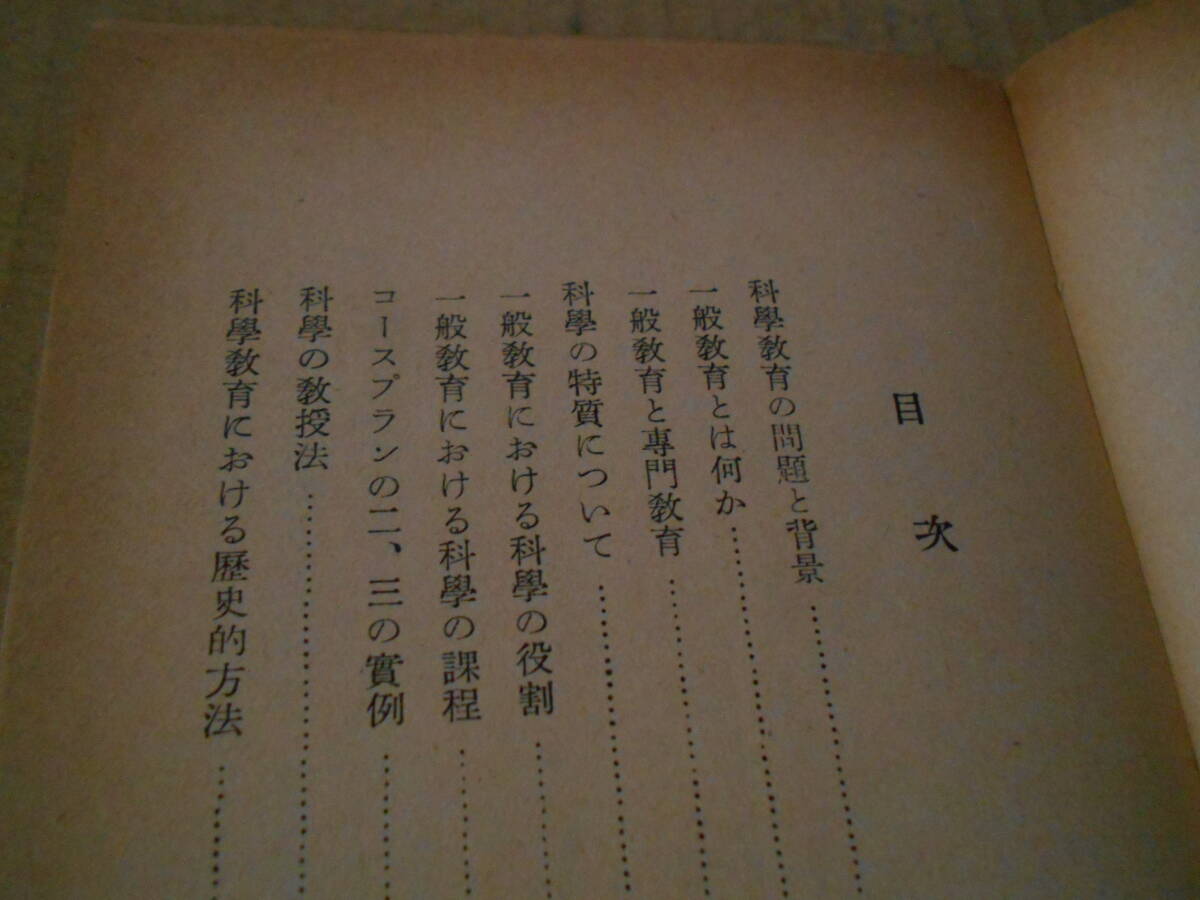 目次
科學敎育の問題と背景
一般敎育とは何か
一般敎育と專門敎育
科學の特質について
一般敎育における科學の役割
一般敎育における科學の課程
コースプランの二、三の實例
科學の敎授法
科學敎育における歷史的方法